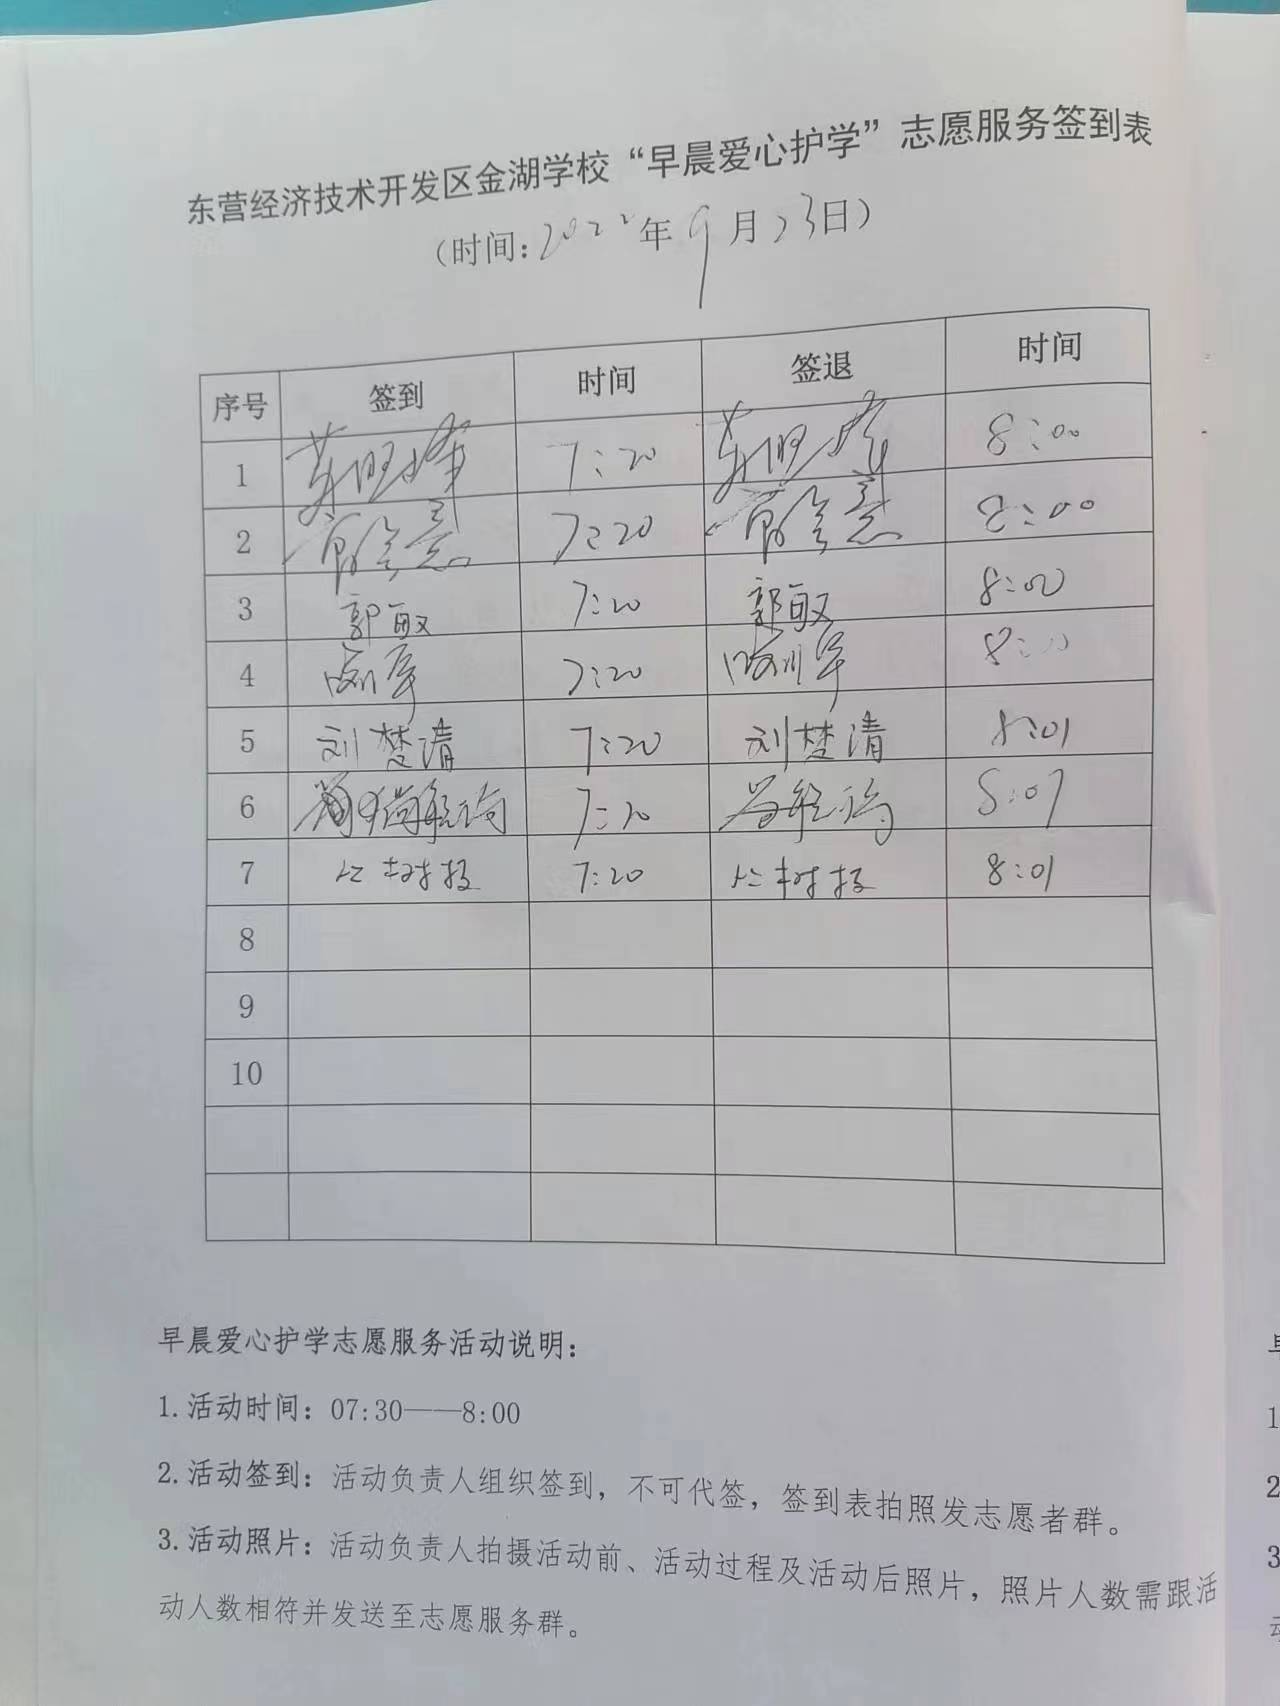 东营经济技术开发区金湖学校“早晨爱心护学”志愿服务签到表
（时间：2022年9月23日）
序号 签到 时间 签退 时间
1 7:20 8:00
2 7:20 8:00
3 郭敏 7:20 郭敏 8:00
4 7:20 8:00
5 刘楚清 7:20 刘楚清 8:01
6 7:20
7 7:20 8:01
8
9
10
早晨爱心护学志愿服务活动说明：
1.活动时间：07:30——8:00
2.活动签到：活动负责人组织签到，不可代签，签到表拍照发志愿者群。
3.活动照片：活动负责人拍摄活动前、活动过程及活动后照片，照片人数需跟活
动人数相符并发送至志愿服务群。
1
2
3